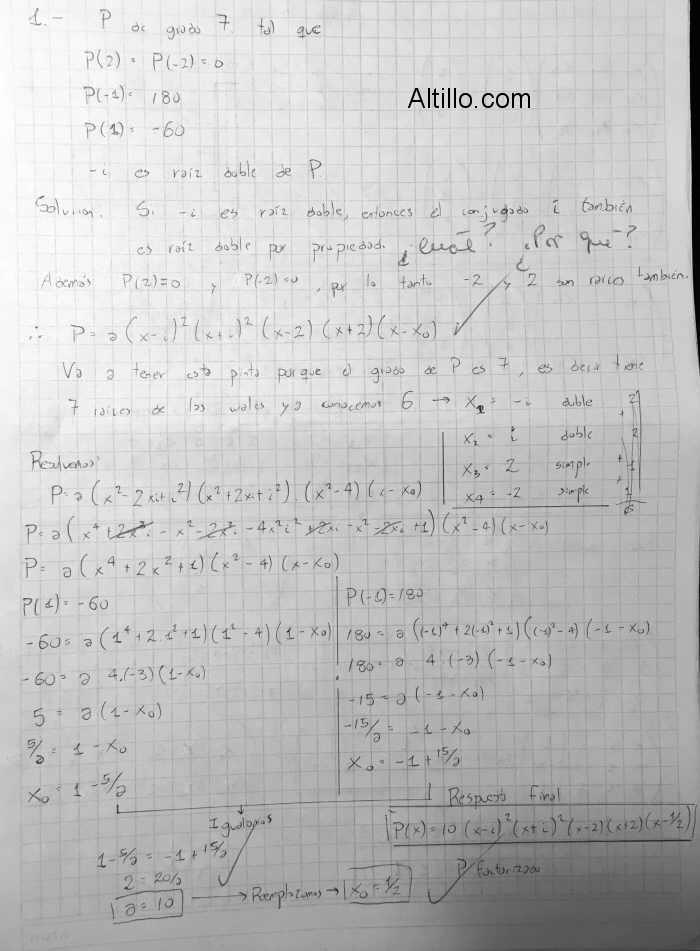 1.- P de grado 7 tal que
P(2) = P(-2) = 0
P(-1) = 180
Altillo.com
P(1) = -60
-i es raíz doble de P.
Solución. Si -i es raíz doble, entonces el conjugado i también
es raíz doble por propiedad. ¿Cuál? ¿Por qué?
Además P(2)=0 y P(-2)=0, por lo tanto -2 y 2 son raíces también.
∴ P = a (x-i)² (x+i)² (x-2) (x+2) (x-x₀)
Va a tener esta pinta porque el grado de P es 7, es decir tiene
7 raíces de las cuales ya conocemos 6 → x₁ = -i doble 2
+
x₂ = i doble 2
+
x₃ = 2 simple 1
+
x₄ = -2 simple 1
6
Resolvemos:
P = a (x² - 2xi + i²) (x² + 2xi + i²) . (x² - 4) (x - x₀)
P = a (x⁴ + 2x³i - x² - 2x³i - 4x²i² + 2xi - x² - 2xi + 1) (x² - 4) (x - x₀)
P = a (x⁴ + 2x² + 1) (x² - 4) (x - x₀)
P(1) = -60
-60 = a (1⁴ + 2.1² + 1) (1² - 4) (1 - x₀)
-60 = a 4.(-3) (1 - x₀)
5 = a (1 - x₀)
5/a = 1 - x₀
x₀ = 1 - 5/a
P(-1) = 180
180 = a ((-1)⁴ + 2(-1)² + 1) ((-1)² - 4) (-1 - x₀)
180 = a . 4 . (-3) (-1 - x₀)
-15 = a (-1 - x₀)
-15/a = -1 - x₀
x₀ = -1 + 15/a
Igualamos
1 - 5/a = -1 + 15/a
2 = 20/a
a = 10 → Reemplazamos → x₀ = 1/2
Respuesta Final
P(x) = 10 (x-i)² (x+i)² (x-2) (x+2) (x-1/2)
P factorizado